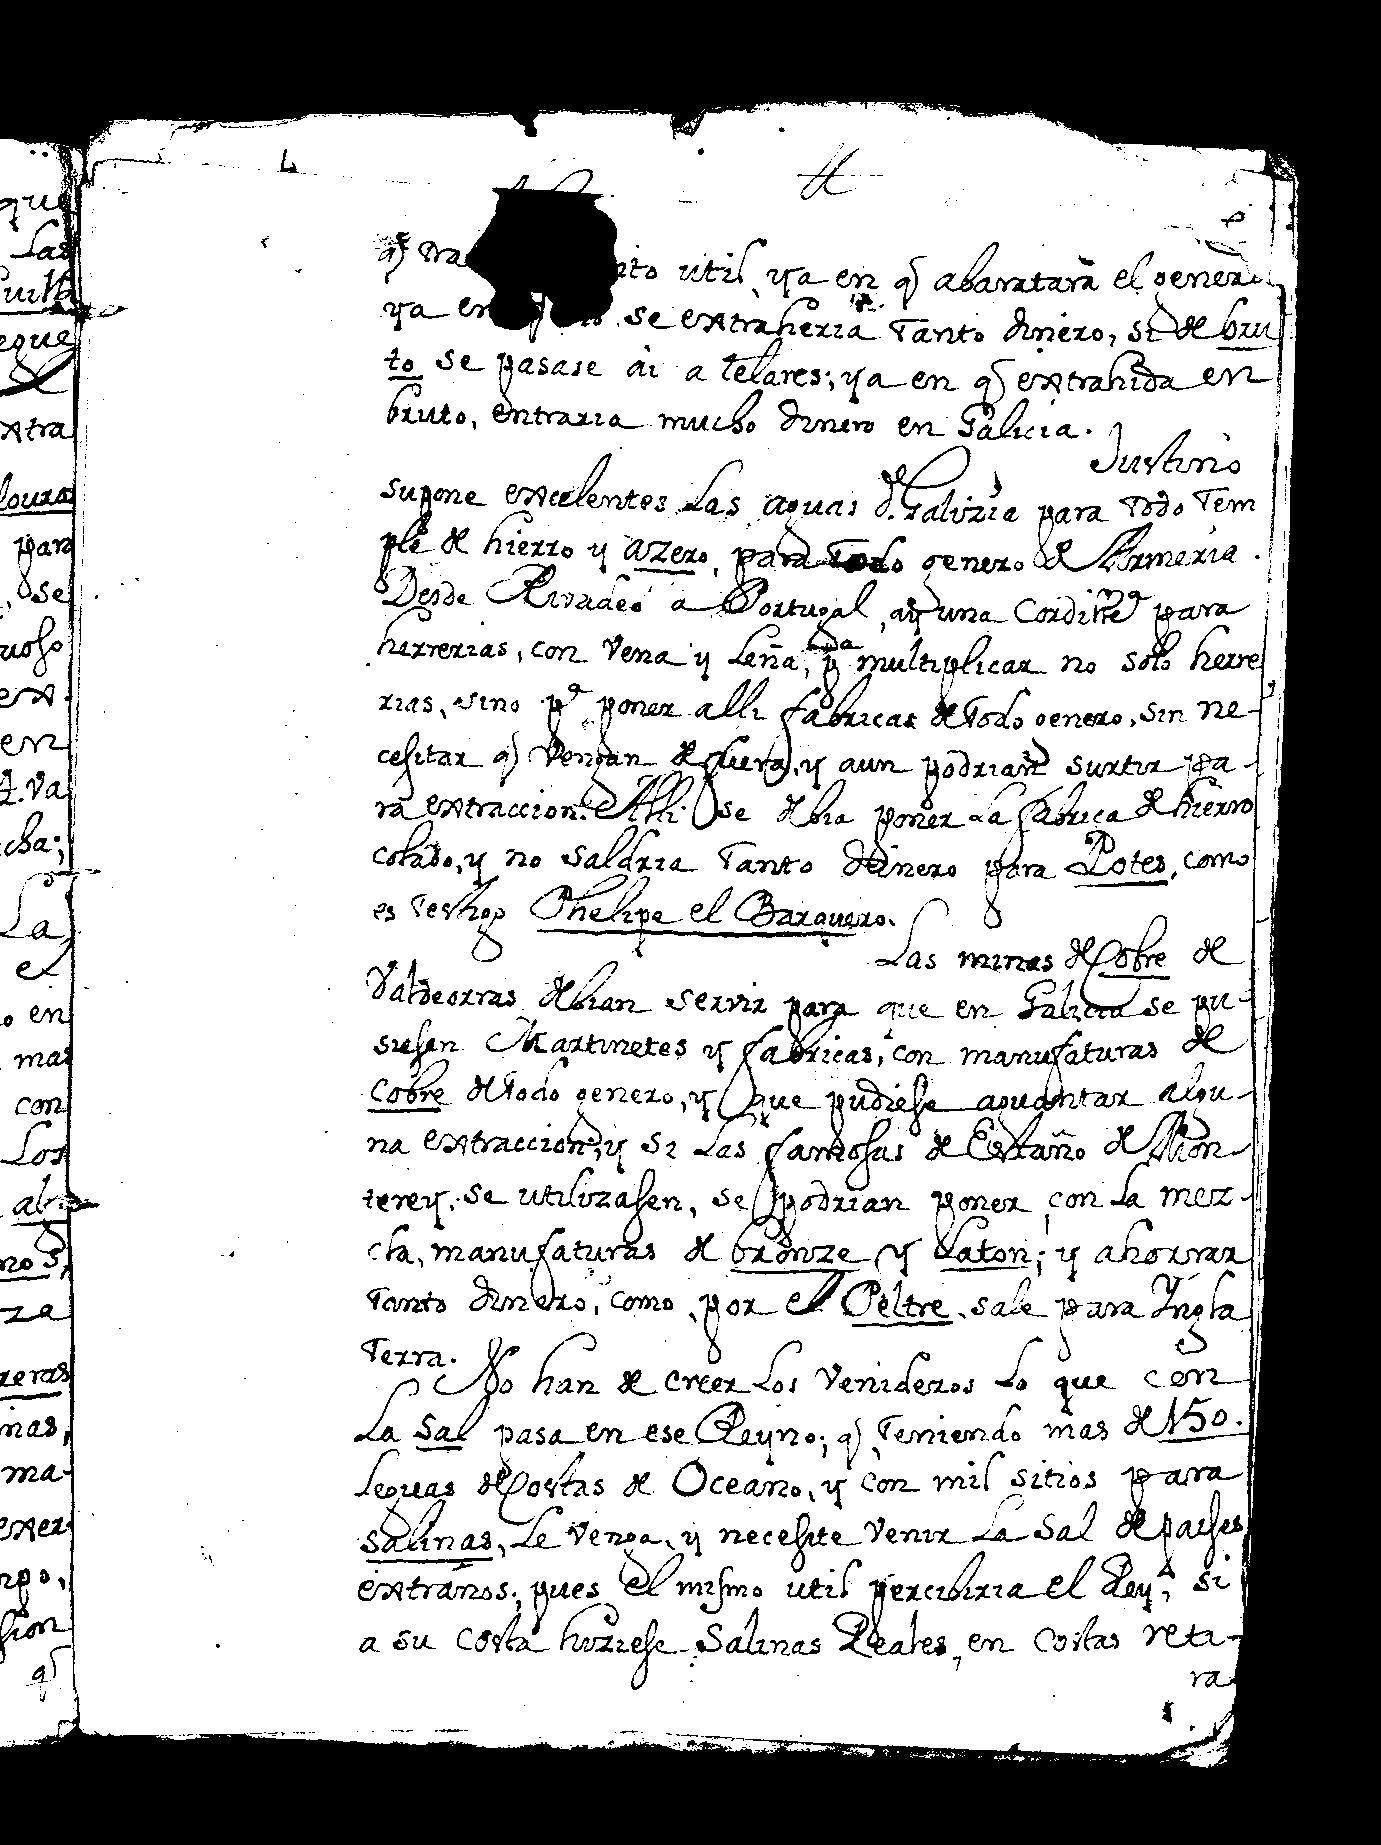 q̃ tra nto util, ya en q̃ abaratara el genero
ya en se extraheria tanto dinero, si de bru
to se pasase ai a telares; ya en q̃ extrahida en
bruto, entraria mucho dinero en Galicia.
Justino
supone excelentes las aguas d. Galizia para todo tem
ple de hierro y azero, para todo genero de Armeria.
Desde Rivadeo a Portugal, ay una Cordille.ª para
herrerias, con vena y leña, p multiplicar no solo herre
rias, sino pª poner alli fabricas de todo genero, sin ne-
cesitar q̃ vengan de fuera, y aun podrian surtir pa-
ra extraccion. Alli se debia poner la fabrica de hierro
colado, y no saldria tanto dinero para Potes, como
es testigo Phelipe el Barquero.
Las minas de Cobre de
Valdeorras debian servir para que en Galicia se pu-
siesen Martinetes y fabricas, con manufaturas de
Cobre de todo genero, y que pudiese aguantar algu-
na extraccion, y si las famosas de Estaño de Mon-
terey. se utilizasen, se podrian poner, con la mez-
cla, manufaturas de bronze y Laton; y ahorrar
tanto dinero, como por el Peltre, sale para Ingla
terra.
No han de creer los venideros lo que con
La Sal pasa en ese Reyno; q̃ teniendo mas de 150.
leguas de Costas de Oceano, y con mil sitios para
Salinas, le venga, y necesite venir La Sal de paises
extraños; pues el mismo util percibiria el Rey, si
a su costa hiziese Salinas Reales, en costas reti-
ra
que
Las
egue
xtra
loura
para
, se
uoso
ex.
en
va
cha;
La
el
o en
mas
con
Los
nos,
za
reras
inas,
ma-
exer
mpo,
sion
q̃